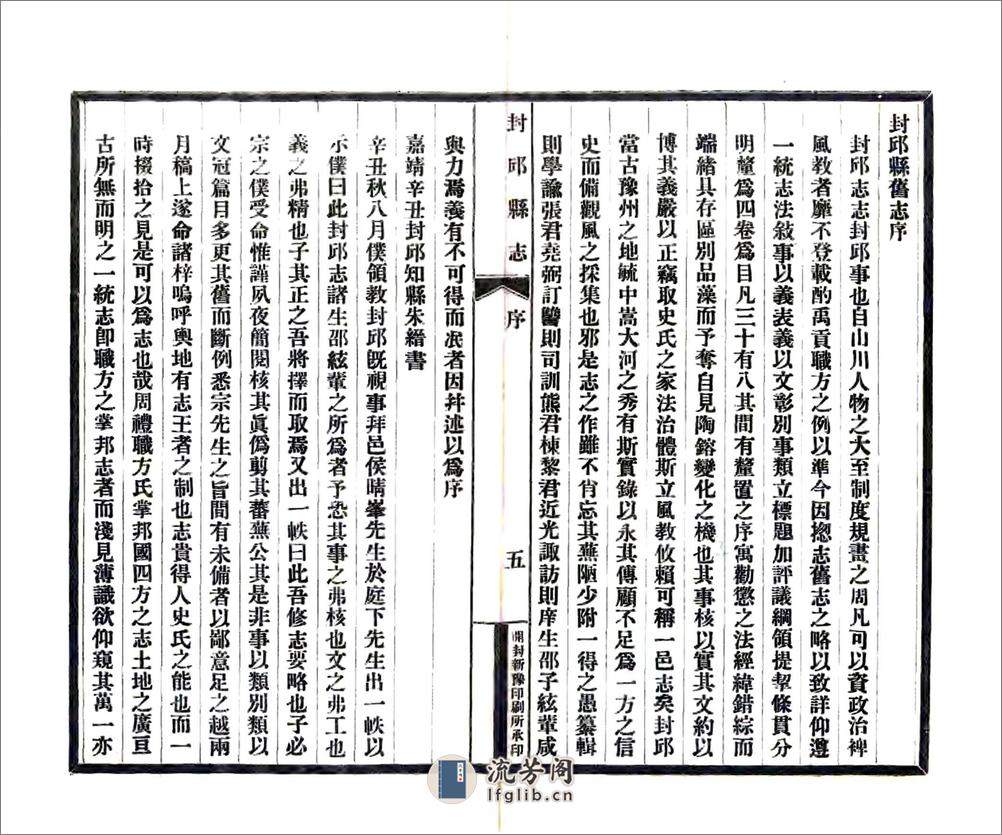 封邱縣舊志序
封邱志志封邱事也自山川人物之大至制度規畫之周凡可以資政治裨
風教者靡不登載酌禹貢職方之例以準今因揔志舊志之略以致詳仰遵
一統志法敘事以義表義以文彰別事類立標題加評議綱領提挈條貫分
明釐爲四卷爲目凡三十有八其間有釐置之序寓勸懲之法經緯錯綜而
端緒具存區別品藻而予奪自見陶鎔變化之機也其事核以實其文約以
博其義嚴以正竊取史氏之家法治體斯立風教攸賴可稱一邑志矣封邱
當古豫州之地毓中嵩大河之秀有斯實錄以永其傳顧不足爲一方之信
史而備觀風之採集也邪是志之作雖不肖忘其蕪陋少附一得之愚纂輯
則學諭張君堯弼訂讐則司訓熊君棟黎君近光諏訪則庠生邵子絃輩咸
封邱縣志
序
五
開封新豫印刷所承印
與力焉義有不可得而泯者因幷述以爲序
嘉靖辛丑封邱知縣朱縉書
辛丑秋八月僕領教封邱旣視事拜邑侯晴峯先生於庭下先生出一帙以
示僕曰此封邱志諸生邵絃輩之所爲者予恐其事之弗核也文之弗工也
義之弗精也子其正之吾將擇而取焉又出一帙曰此吾修志要略也子必
宗之僕受命惟謹夙夜簡閱核其眞僞剪其蕃蕪公其是非事以類別類以
文冠篇目多更其舊而斷例悉宗先生之旨間有未備者以鄙意足之越兩
月稿上遂命諸梓嗚呼輿地有志王者之制也志貴得人史氏之能也而一
時掇拾之見是可以爲志也哉周禮職方氏掌邦國四方之志土地之廣亘
古所無而明之一統志卽職方之掌邦志者而淺見薄識欲仰窺其萬一亦
流芳阁
lfglib.cn